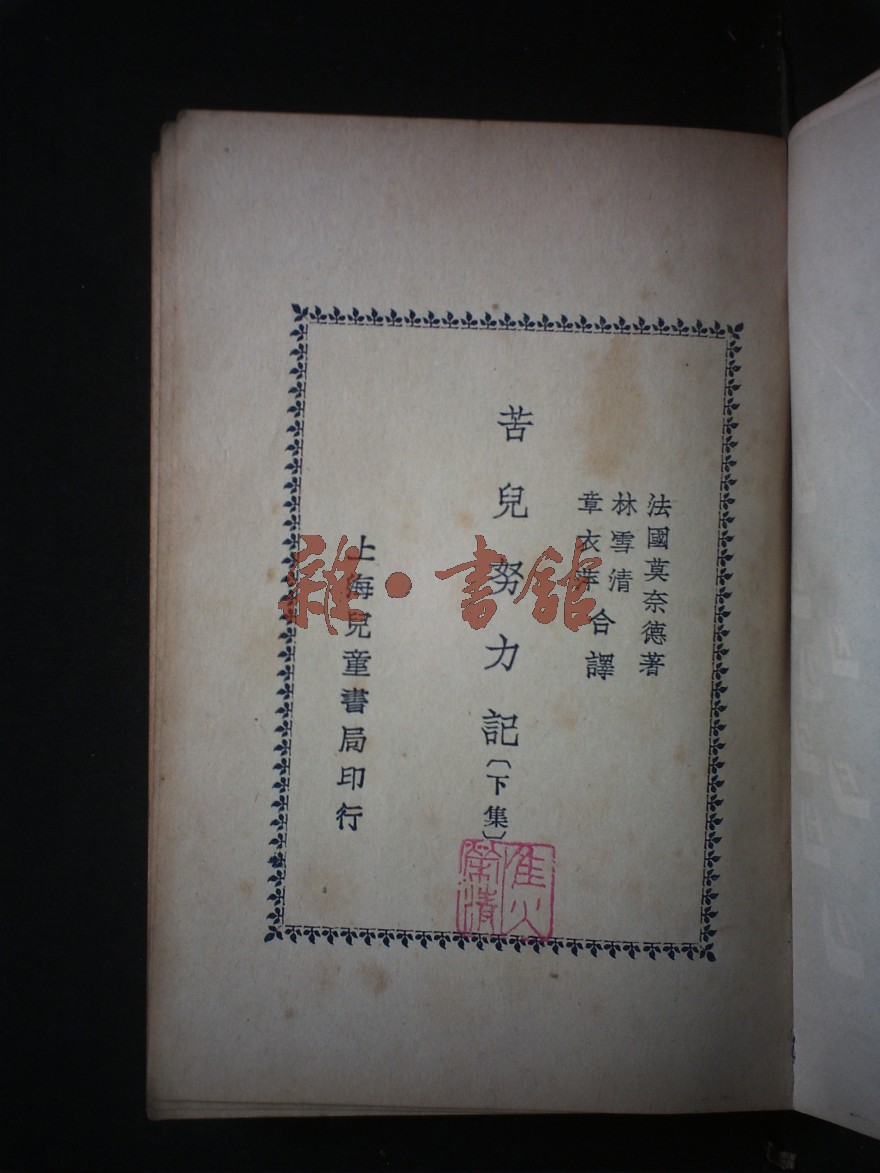 法國莫奈德著
林雪清
章衣萍
合譯
苦兒努力記〔下集〕
上海兒童書局印行
雜·書館